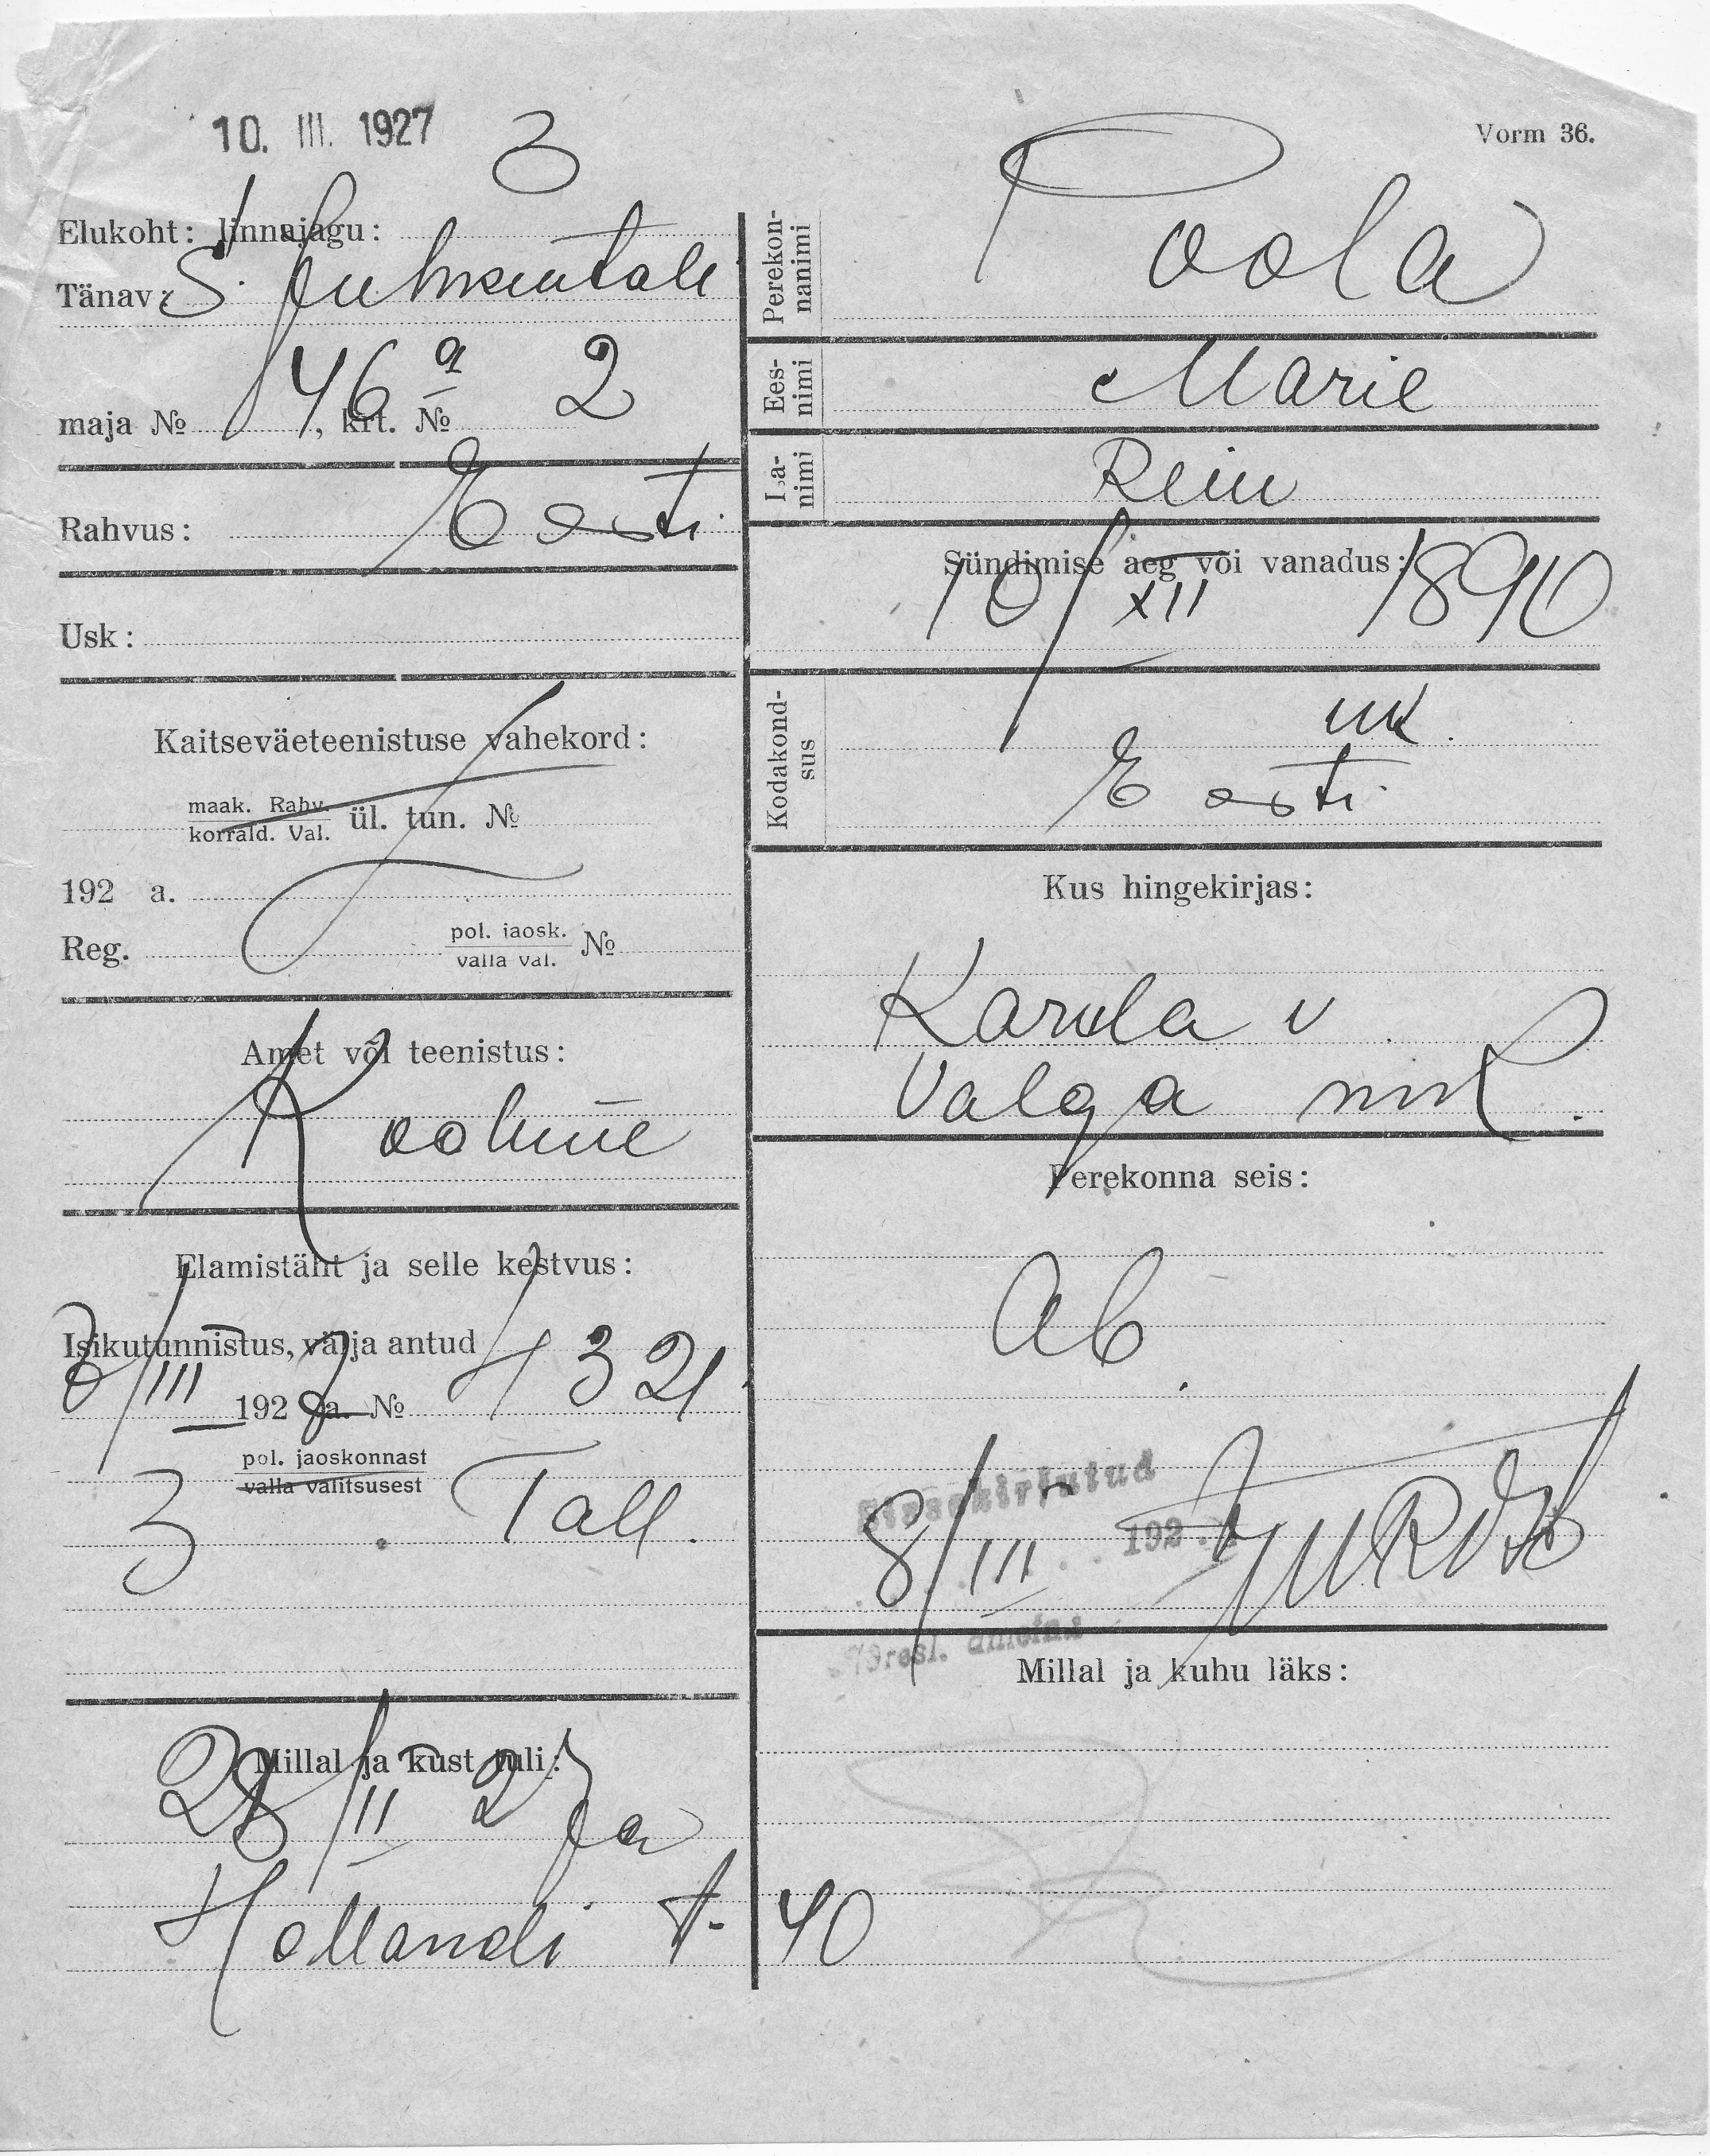 10. III. 1927 3
Vorm 36.
Elukoht: linnajagu:
Tänav: S. Juhkentali
maja № 46 a, krt. № 2
Rahvus: Eesti
Usk:
Kaitseväeteenistuse vahekord:
maak. Rahv.
korrald. Val. ül. tun. №
192 a.
Reg. pol. jaosk.
valla val. №
Amet või teenistus:
Elamistäht ja selle kestvus:
Isikutunnistus, välja antud
3/III 1927 a. № 4321
pol. jaoskonnast
valla valitsusest
3 Tall.
Millal ja kust tuli:
28/II 27 a
Hollandi t. 40
Perekon-
nanimi Poola
Ees-
nimi Marie
I,a-
nimi Rein
Sündimise aeg või vanadus:
10/XII 1890
Kodakond-
sus
Eesti
Kus hingekirjas:
Karula v
Valga mk.
Perekonna seis:
Ab.
Sissekirjutud
8/III 192
Adresl. ametn.
Millal ja kuhu läks: